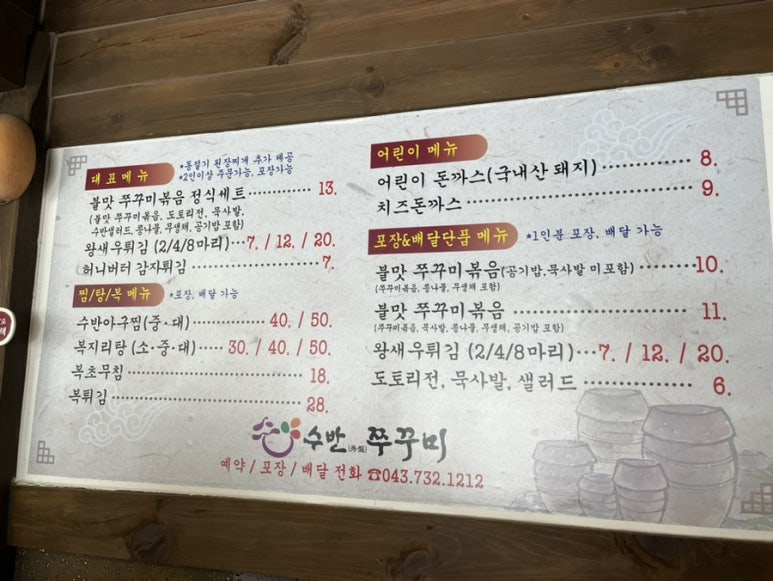 대표메뉴
*동절기 된장찌개 추가 제공
*2인이상 주문가능, 포장가능
불맛 쭈꾸미볶음 정식세트 13.
(불맛 쭈꾸미볶음, 도토리전, 묵사발,
수반샐러드, 콩나물, 무생채, 공기밥 포함)
왕새우튀김 (2/4/8마리) 7. / 12. / 20.
허니버터 감자튀김 7.
찜/탕/복 메뉴 *포장, 배달 가능
수반아구찜(중·대) 40. / 50.
복지리탕 (소·중·대) 30. / 40. / 50.
복초무침 18.
복튀김 28.
어린이 메뉴
어린이 돈까스(국내산 돼지) 8.
치즈돈까스 9.
포장&배달단품 메뉴 *1인분 포장, 배달 가능
불맛 쭈꾸미볶음(공기밥,묵사발 미포함) 10.
(쭈꾸미볶음, 콩나물, 무생채 포함)
불맛 쭈꾸미볶음 11.
(쭈꾸미볶음, 묵사발, 콩나물, 무생채, 공기밥 포함)
왕새우튀김 (2/4/8마리) 7. / 12. / 20.
도토리전, 묵사발, 샐러드 6.
수반 쭈꾸미
예약 / 포장 / 배달 전화 ☎043.732.1212